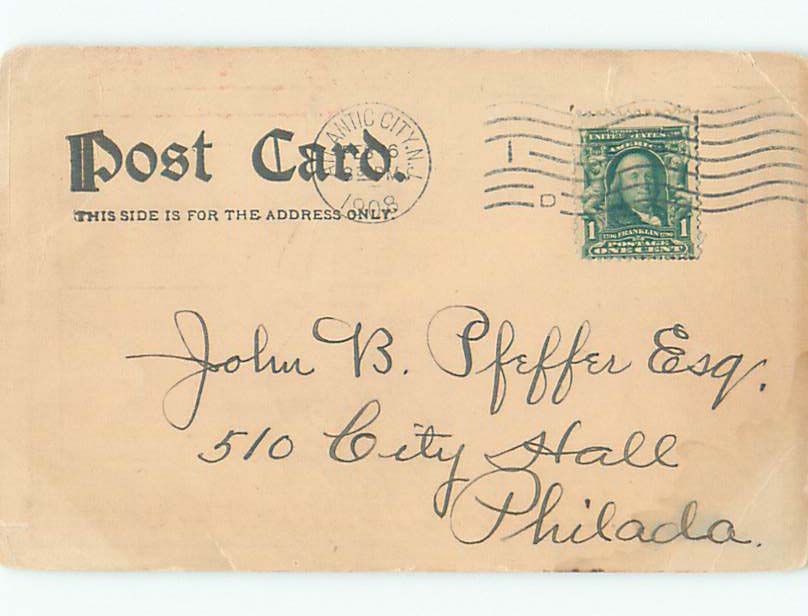 Post Card.
THIS SIDE IS FOR THE ADDRESS ONLY.
ATLANTIC CITY, N.J.
1908
D
SERIES 1902
UNITED STATES OF
AMERICA
1 FRANKLIN 1
POSTAGE
ONE CENT
John B. Pfeffer Esq.
510 City Hall
Philada.